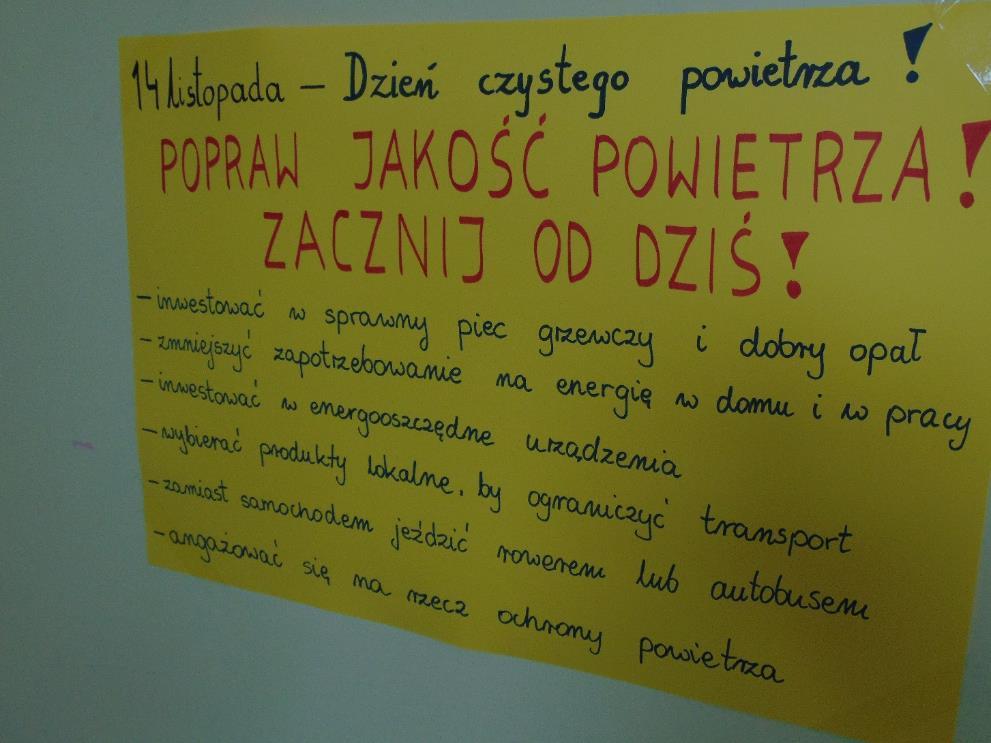 14 listopada – Dzień czystego powietrza!
POPRAW JAKOŚĆ POWIETRZA!
ZACZNIJ OD DZIŚ!
– inwestować w sprawny piec grzewczy i dobry opał
– zmniejszyć zapotrzebowanie na energię w domu i w pracy
– inwestować w energooszczędne urządzenia
– wybierać produkty lokalne, by ograniczyć transport
– zamiast samochodem jeździć rowerem lub autobusem
– angażować się na rzecz ochrony powietrza